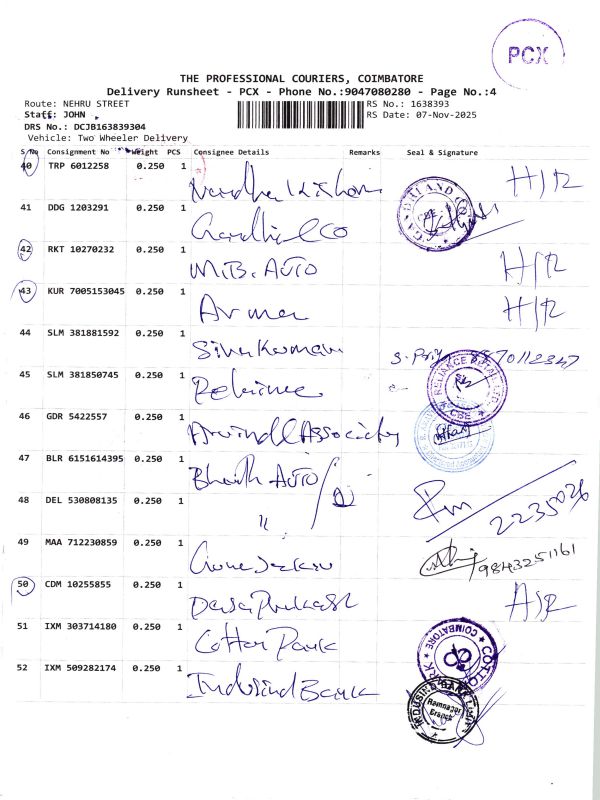 PCX
THE PROFESSIONAL COURIERS, COIMBATORE
Delivery Runsheet - PCX - Phone No.:9047080280 - Page No.:4
Route: NEHRU STREET
RS No.: 1638393
Staff: JOHN
RS Date: 07-Nov-2025
DRS No.: DCJB163839304
Vehicle: Two Wheeler Delivery
S No Consignment No Weight PCS Consignee Details Remarks Seal & Signature
40 TRP 6012258 0.250 1 H/R
41 DDG 1203291 0.250 1 Gandhi & CO
42 RKT 10270232 0.250 1 M.B. AUTO H/R
43 KUR 7005153045 0.250 1 H/R
44 SLM 381881592 0.250 1 Sivakumar
45 SLM 381850745 0.250 1 Reliance
46 GDR 5422557 0.250 1 Arvind & Associates
47 BLR 6151614395 0.250 1 AUTO
48 DEL 530808135 0.250 1 " 2235026
49 MAA 712230859 0.250 1 9843251161
50 CDM 10255855 0.250 1
51 IXM 303714180 0.250 1 Cotton Park
COIMBATORE
52 IXM 509282174 0.250 1 Indusind Bank
Ramnagar
Branch